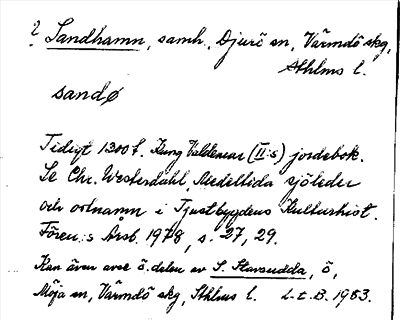 ? Sandhamn, samh., Djurö sn, Värmdö skg,
Sthlms l.
sandø
Tidigt 1200 t. Kung Valdemar (II:s) jordebok.
Se Chr. Westerdahl, Medeltida sjöleder
och ortnamn i Tjustbygdens Kulturhist.
Fören:s Årsb. 1978, s. 27, 29.
Kan även avse ö. delen av S. Stavsudda, ö,
Möja sn, Värmdö skg, Sthlms l. L.t.B. 1983.